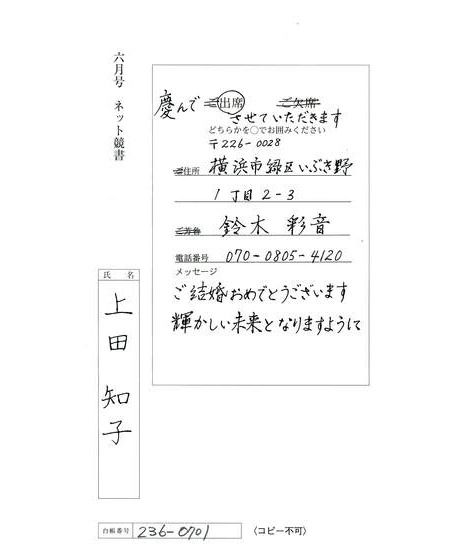 六月号 ネット競書
慶んで ご出席 ご欠席
させていただきます
どちらかを○でお囲みください
〒226-0028
ご住所 横浜市緑区いぶき野
1丁目2-3
ご芳名 鈴木 彩音
電話番号 070-0805-4120
メッセージ
ご結婚おめでとうございます
輝かしい未来となりますように
氏名
上田 知子
台帳番号 236-0701 〈コピー不可〉